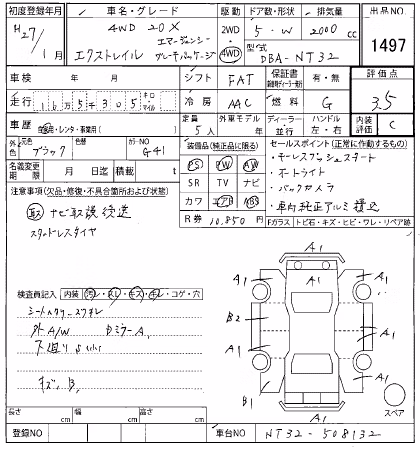 初度登録年月 車名・グレード 駆動 ドア数・形状 排気量 出品NO
H27/1月 4WD 20X 2WD 5・W 2000cc
エクストレイル エマージェンシーブレーキパッケージ 4WD 型式 DBA-NT32 1497
車検 年 月 シフト FAT 保証書 有・無 評価点
走行 キロ マイル 冷房 AAC 燃料 G 3.5
車歴 自家用・レンタ・事業用( ) 定員 5人 外車モデル 年 ディーラー 並行 ハンドル 左・右 内装 C
外色 元色 ブラック カラーNO G41 装備品(純正品に限る) セールスポイント(正常に作動するもの)
名義変更期限 月 日迄 積載量 t PS PW AW
・オートライト
注意事項(欠品・修復・不具合箇所および状態) SR TV ナビ ・バックカメラ
ナビ取説後送 カワ エアB ABS ・車内純正アルミ積込
スタッドレスタイヤ R券 10,850円 Fガラス トビ石・キズ・ヒビ・ワレ・リペア跡
検査員記入 内装 汚レ・スレ・キズ・コゲ・穴
外A/W
下廻り
キズ、B、
A1
A1
A1
B2
A1
A1
A1
B1
A1
A1
スペア
長さ cm 幅 cm 高さ cm
登録NO 車台NO NT32-508132